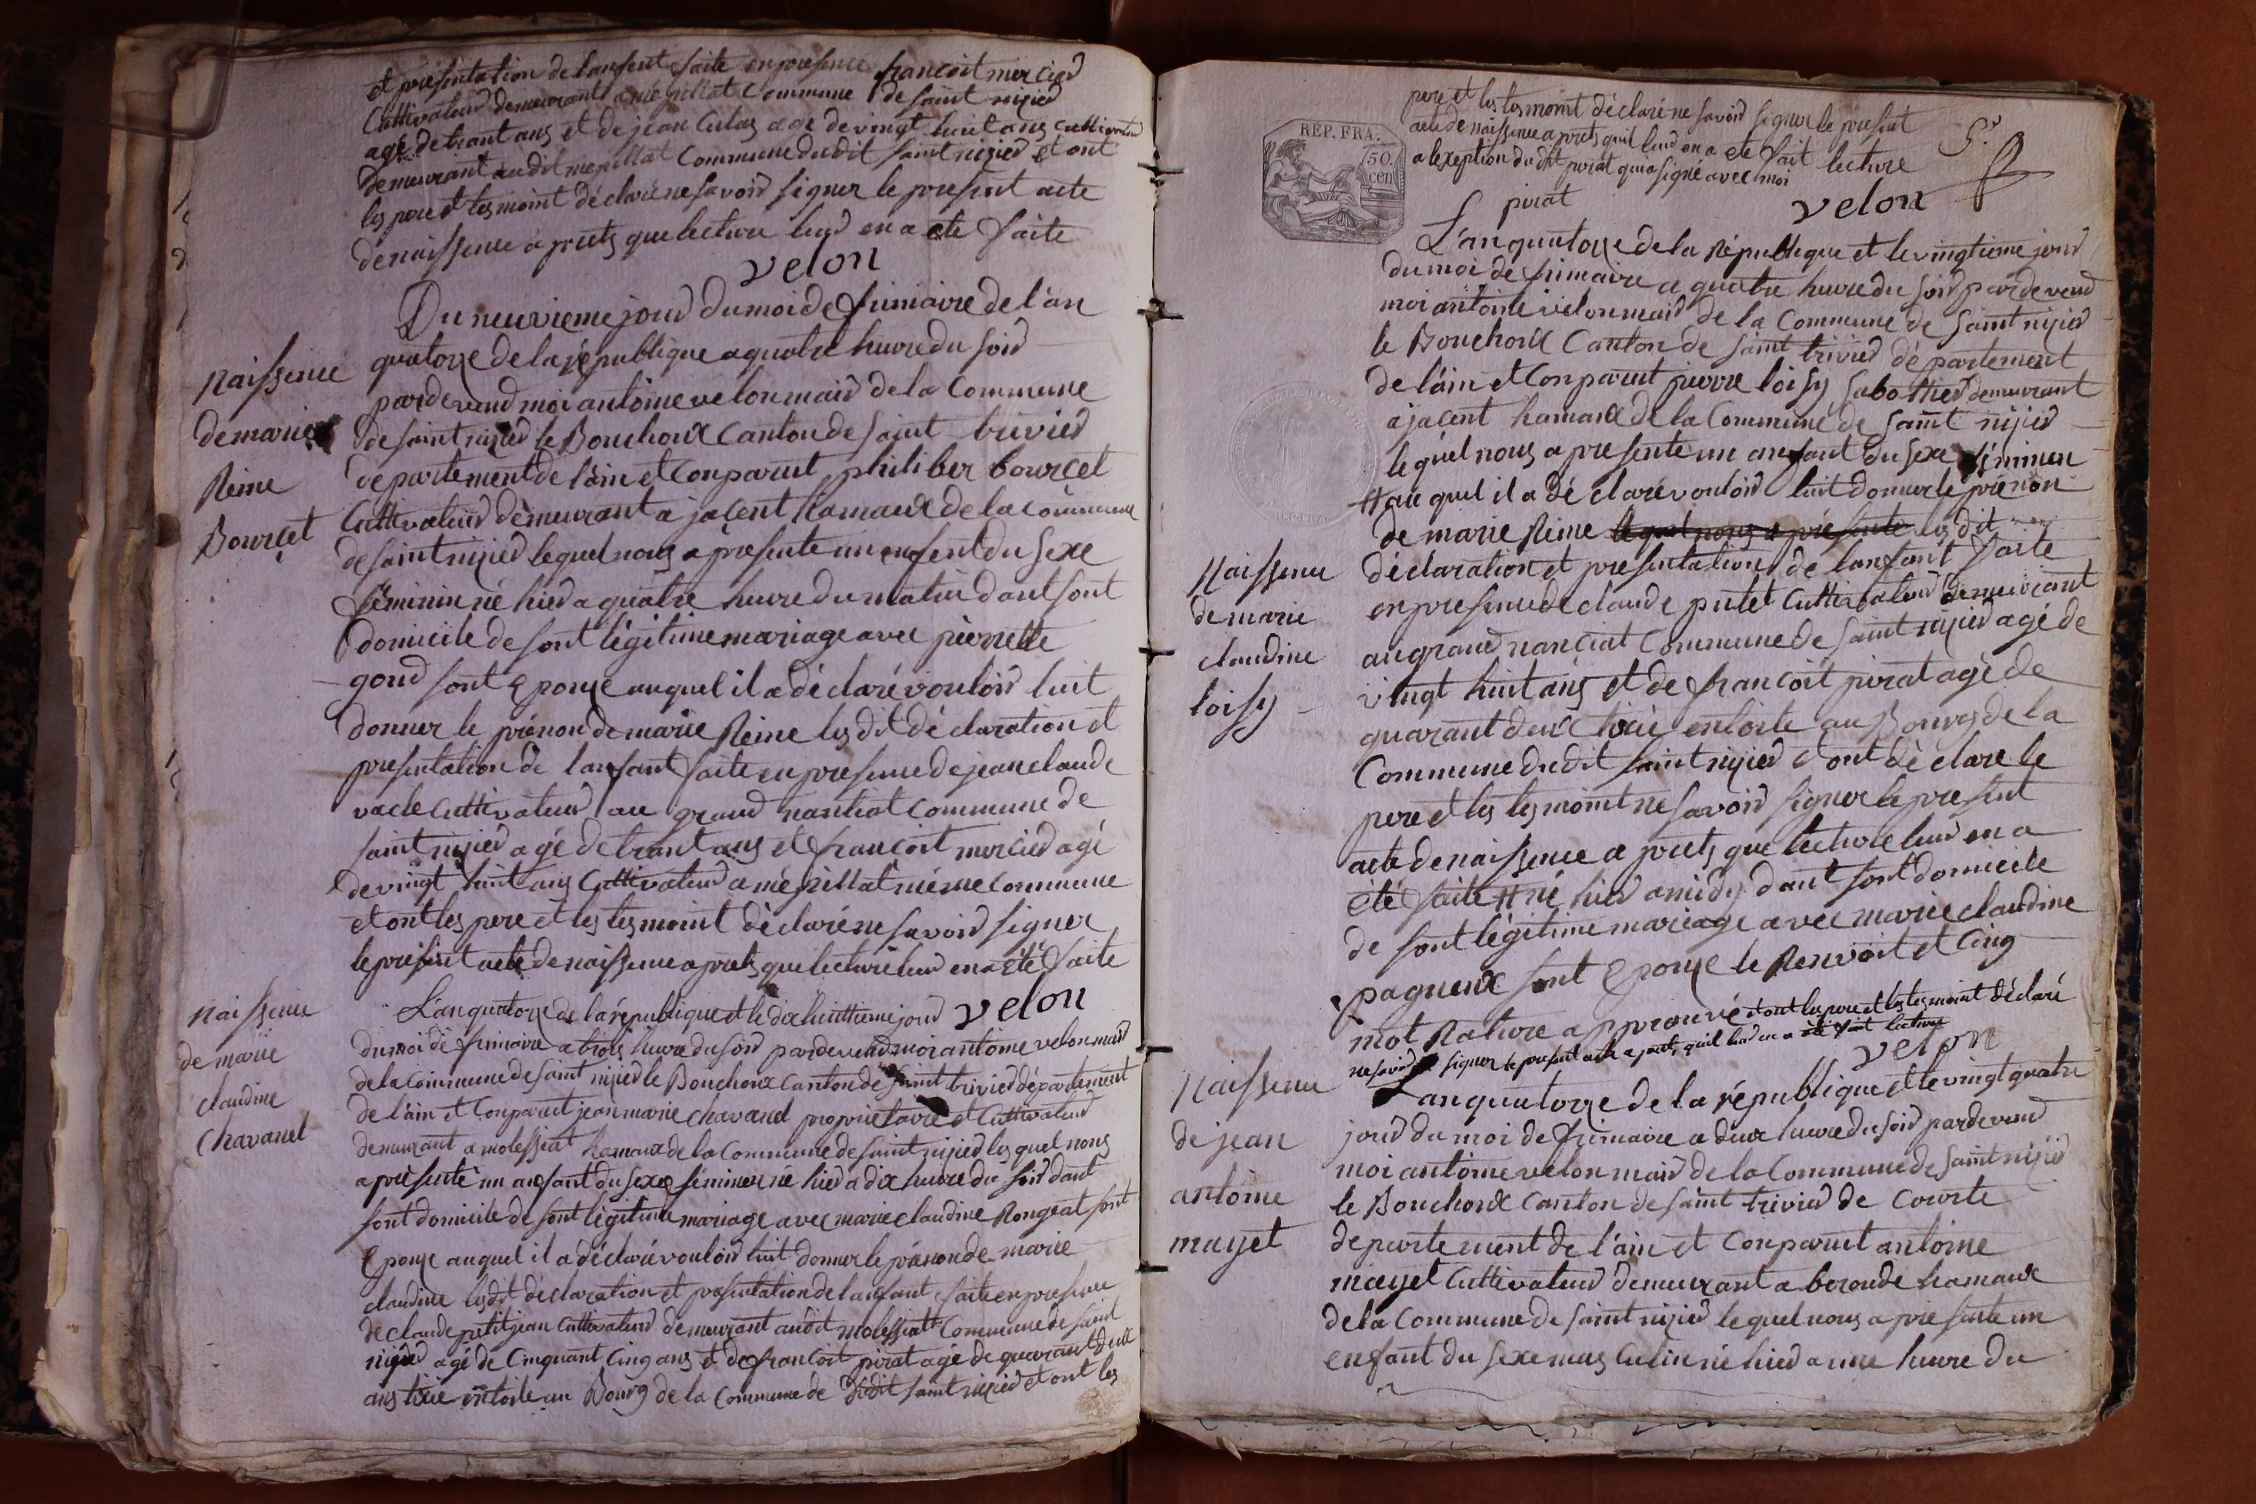 et présentation de lanfent faite en presence francoit mercier
Cultivateur demeurant a mépillat Commune de saint nizier
agé de trant ans et de jean Culas agé de vingt huit ans cultivateur
demeurant audit mepillat Commune dudit saint nizier et ont
les pere et tesmoint déclaré ne savoir signer le present acte
de naissence a prets que lecture leur en a ete faite
velon
Du neuvieme jour du moi de frimaire de l'an
quatorze de la république a quatre heure du soir
Naissence
pardevend moi antoine velon mair de la Commune
de marie
de saint nizier le Bouchoux Canton de saint trivier
Reine
departement de l'ain et Conparut philiber bourcet
Bourcet
Cultivateur demeurant a jacent hamaux de la commune
de saint nizier lequel nous a presenté un enfent du sexe
féminin né hier a quatre heure du matin dant sont
domicile de sont légitime mariage avec pierrette
gour sont eponse auquel il a déclaré vouloir luit
donner le prénon de marie Reine les dit déclaration et
presentation de lanfant faite en presence de jean claude
vacle cultivateur au grand nantiat commune de
saint nizier agé de trant ans et francoit mercier agé
de vingt huit ans Cultivateur a mépillat méme Commune
et ont les pere et les tesmoint déclaré ne savoir signer
le present acte de naissence a prets que lecture leur en a été faite
velon
Naissence
L'an quatorze de la république et le dix huittieme jour
de marie
du moi de frimaire a trois heure du soir pardevend moi antoine velon mair
claudine
de la Commune de saint nizier le Bouchoux Canton de saint trivier département
Chavanel
de l'ain et Conparut jean marie Chavanel proprietaire et Cultivateur
demeurant a molessiat hamaux de la Commune de saint nizier les quel nous
a présenté un anfant du sexe féminen né hier a dix heure du soir dant
sont domicile de sont légitime mariage avec marie claudine Rongeat sont
Eponse auquel il a déclaré vouloir luit donner le prénon de marie
claudine lesdit déclaration et presentation de lanfant faite en presence
de claude petitjean cultivateur demeurant audit molessiatt Commune de saint
nizier agé de Cinquant Cinq ans et de francoit pirat agé de quarant deux
ans tixie entoile au Bourg de la Commune de dudit saint nizier et ont les
pere et les tesmoint déclaré ne savoir signer le present
acte de naissence a prets quil leur en a ete fait lecture
a lexeption du dit pirat qui a signé avec moi
REP. FRA.
50.
cen
pirat
velon
L'an quatorze de la République et le vingtieme jour
du moi de frimaire a quatre heure du soir pardevend
moi antoine velon mair de la Commune de saint nizier
le Bouchoux Canton de saint trivier département
de l'ain et Conparut pierre loisy sabottier demeurant
a jacent hamaux de la Commune de saint nizier
le quel nous a presente un anfant du sexe féminen
# au quel il a déclaré vouloir luit donner le prénon
de marie Reine le quel nous a présenté les dit
Naissence
déclaration et presentation de lanfant faite
de marie
en presence de claude putet Cultivateur demeurant
claudine
au grand nanciat Commune de saint nizier agé de
loisy
vingt huit ans et de francoit pirat agé de
quarant deux tixie entoile au Bourg de la
Commune dudit saint nizier et ont déclare le
pere et les tesmoint ne savoir signer le present
acte de naissence a prets que lecture leur en a
été faite # né hier a midy dant sont domicile
de sont légitime mariage avec marie claudine
paqueux sont Eponse le Renvoit et Cinq
mot Rature approuvé et ont les pere et les tesmoint déclaré
ne savoir signer le present acte a prets quil leur en a été fait lecture
velon
Naissence
L'an quatorze de la république et le vingt quatre
de jean
jour du moi de frimaire a deux heure du soir pardevend
antoine
moi antoine velon mair de la Commune de saint nizier
mayet
le Bouchoux Canton de saint trivier de Courte
departement de l'ain et Conparut antoine
mayet Cultivateur demeurant a beronde hamaux
de la Commune de saint nizier lequel nous a presente un
enfant du sexe mas Culin né hier a une heure du